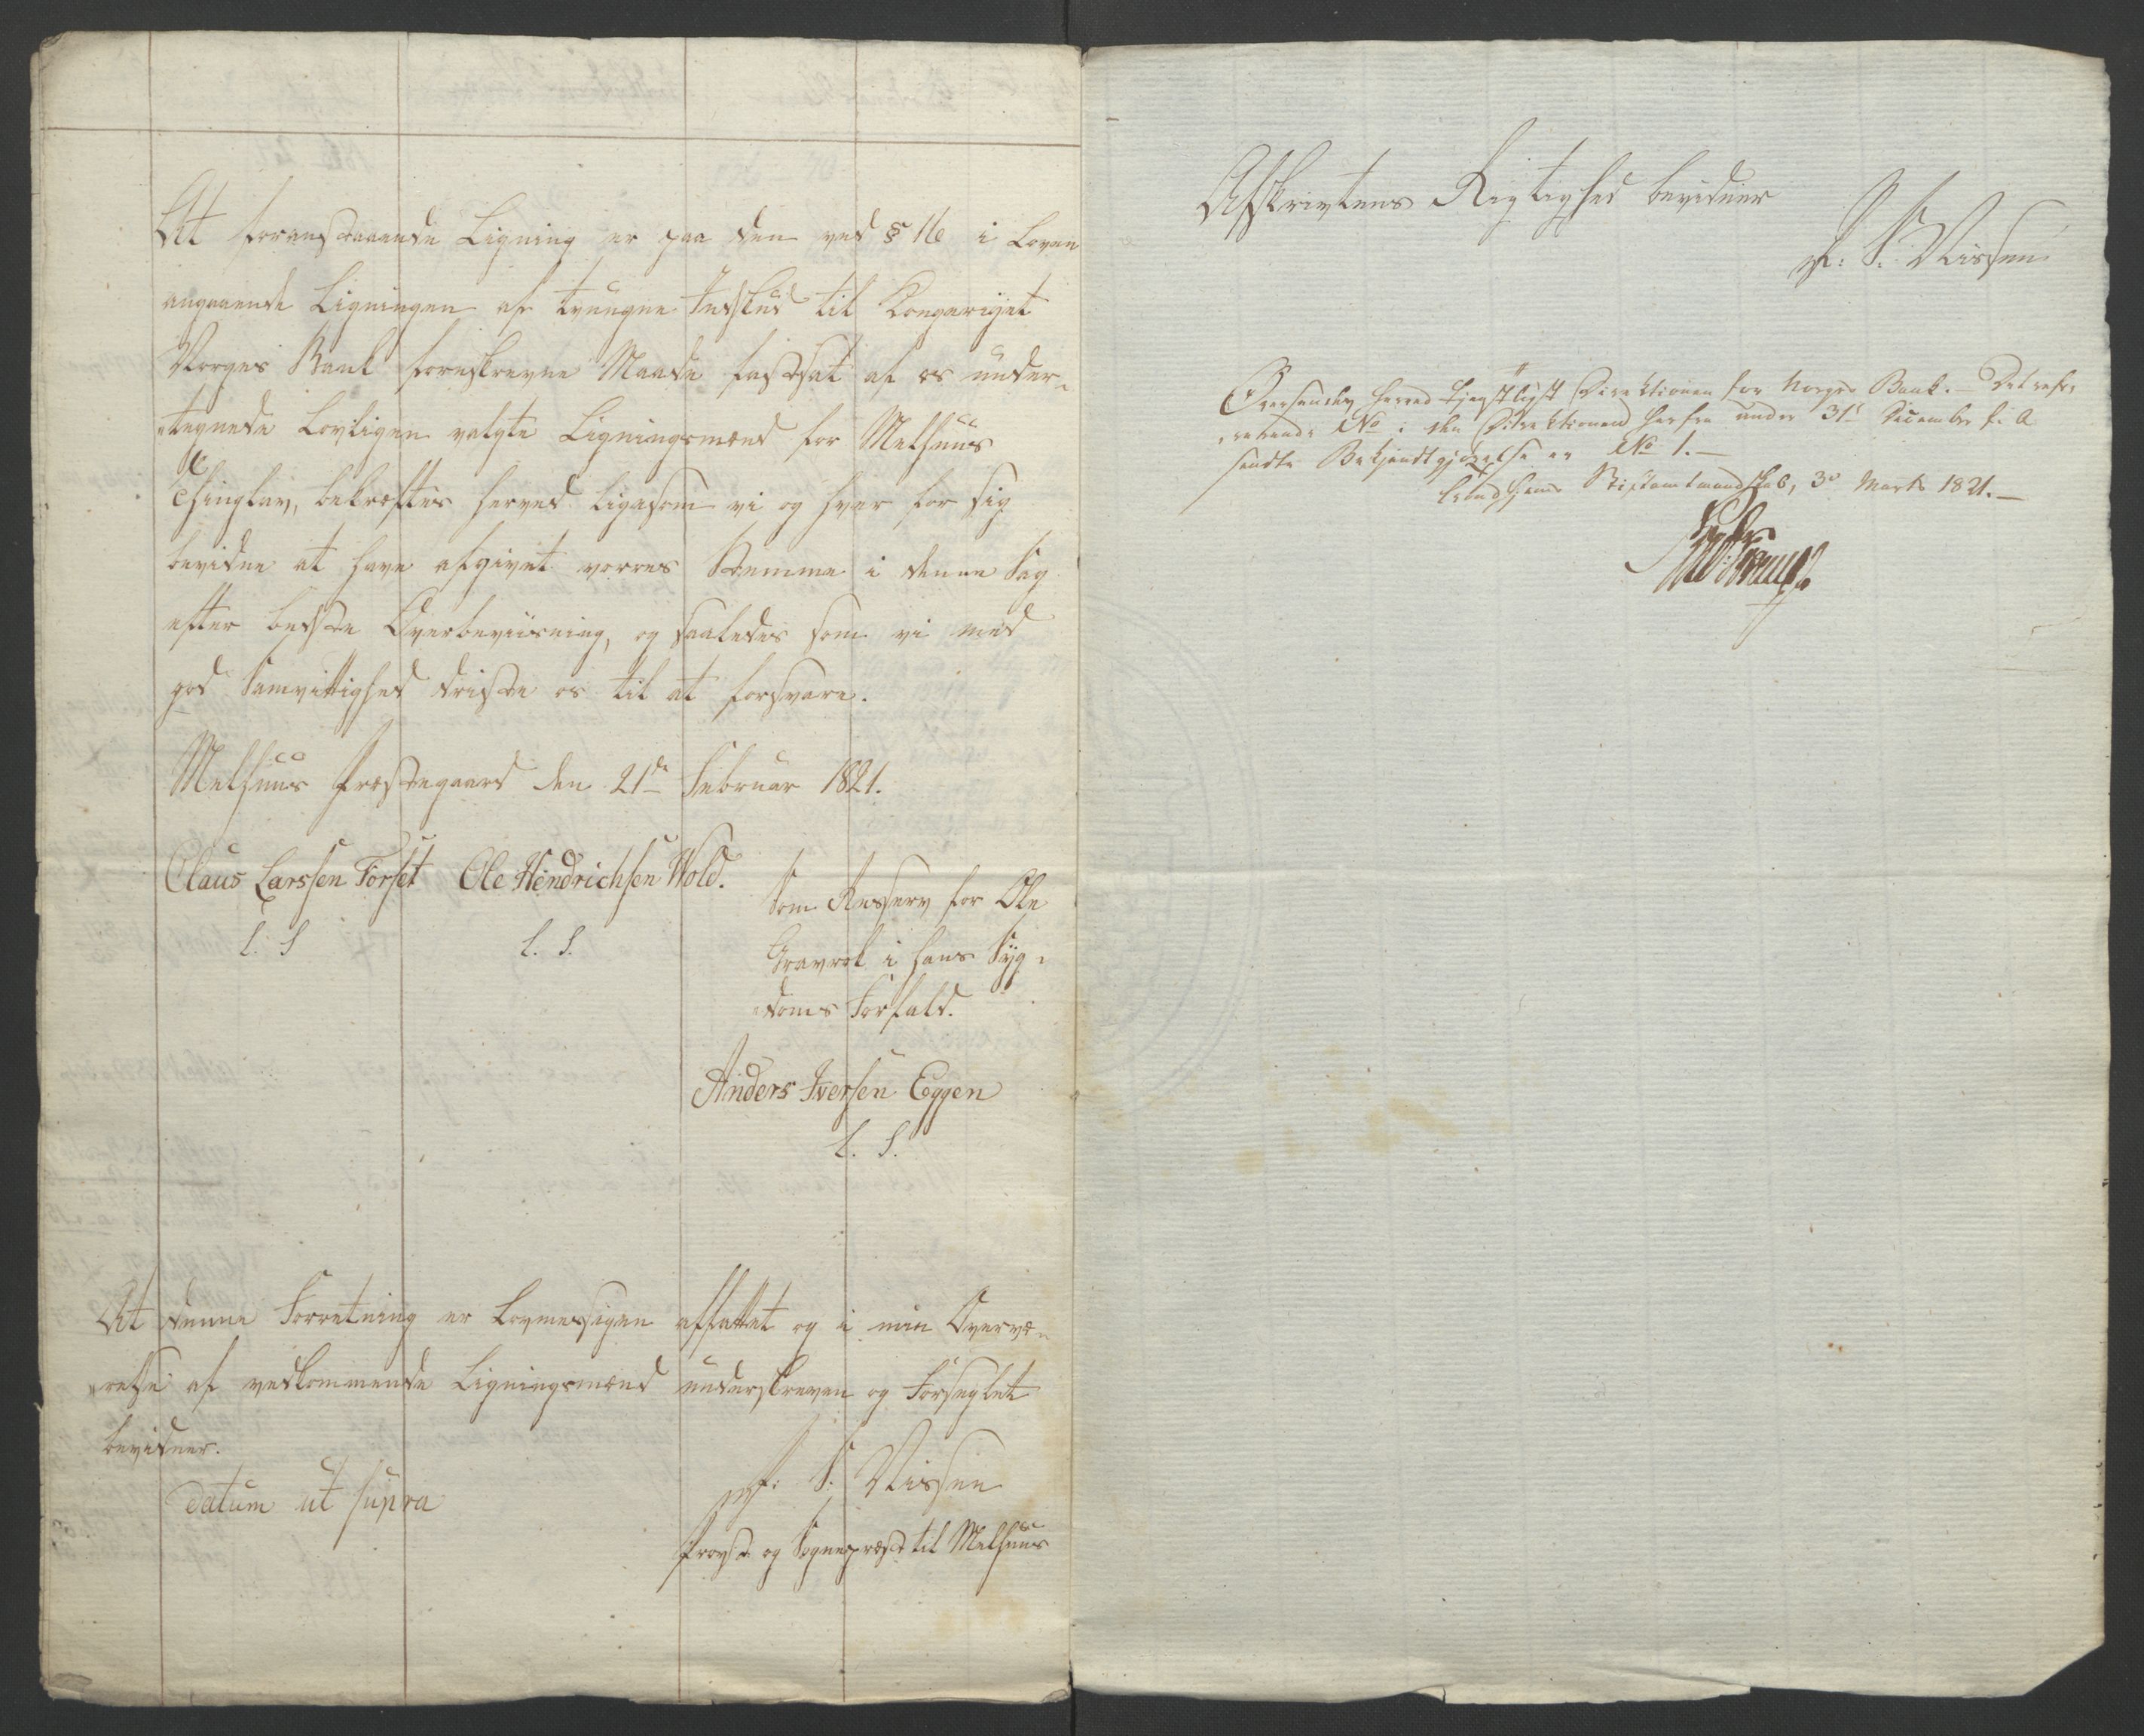 At foranstaaende Ligning er paa den ved § 16 i Loven
angaaende Ligningen af tvungne Indskud til Kongeriget
Norges Bank foreskrevne Maade fastsat af os under-
tegnede Lovligen valgte Ligningsmænd for Melhuus
Thinglav, bekræftes herved ligesom vi og hver for sig
bevidne at have afgivet vorres Stemme i denne Sag
efter bedste Overbeviisning, og saaledes som vi med
god Samvittighed driste os til at forsvare.
Melhuus Præstegaard den 21de Februar 1821.
Claus Larssen Forset Ole Hendrichsen Wold.
L. S L. S.
Som Reserv for Ole
Gravrok i hans Syg-
doms Forfald.
Anders Iversen Eggen
L. S.
At denne Forretning er Lovmessigen affattet og i min Overvæ-
relse af vedkommende Ligningsmænd underskreven og Forseglet
bevidner.
datum ut supra
S. Nissen
Provst og Sognepræst til Melhuus
Afskrivtens Rigtighed bevidner
S. Nissen
Oversendes herved tienstligst Direktionen for Norges Bank. Det refe-
rerende No i den Direktionen herfra under 31te December f. A
sendte Bekjendtgjørelse er No 1.
Trondhjems Stiftamtmandskab, 3de Marts 1821.